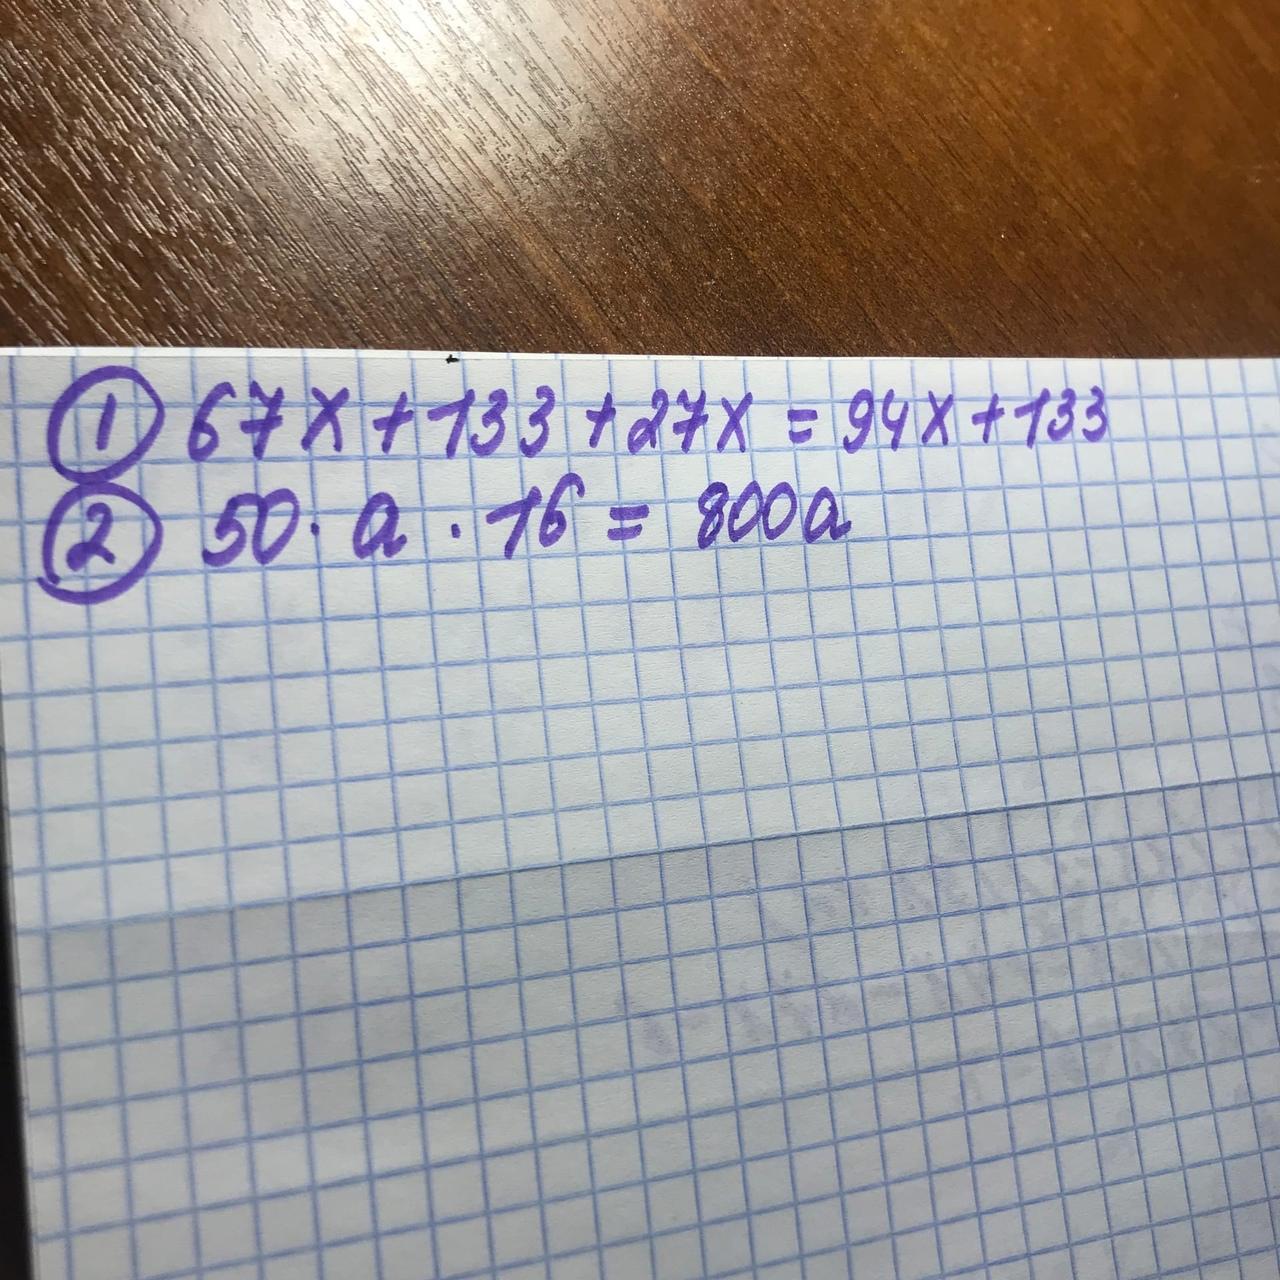 ① 67x + 133 + 27x = 94x + 133
② 50 · a · 16 = 800a